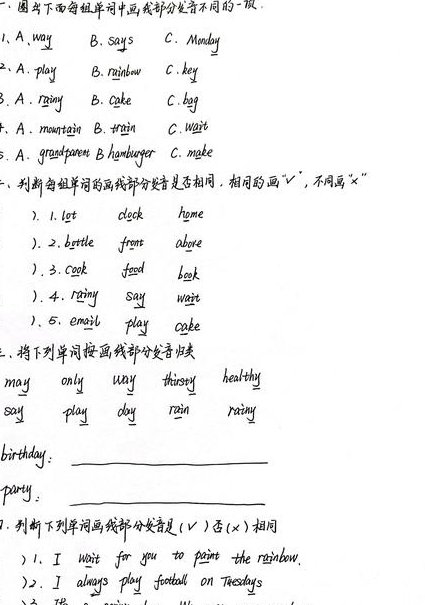 一、圈出下面每组单词中画线部分发音不同的一项.
1、A、way B. says C. Monday
2、A. play B. rainbow C. key
3. A. rainy B. Cake C. bag
4. A. mountain B. train C. wait
5. A. grandparent B hamburger C. make
二、判断每组单词的画线部分发音是否相同,相同的画"√",不同画"×"
). 1. lot clock home
). 2. bottle front above
). 3. cook food book
). 4. rainy say wait
). 5. email play cake
三、将下列单词按画线部分发音归类
may only way thirsty healthy
say play day rain rainy
birthday:
party:
四. 判断下列单词画线部分发音是(√)否(×)相同
) 1. I wait for you to paint the rainbow.
) 2. I always play football on Tuesdays